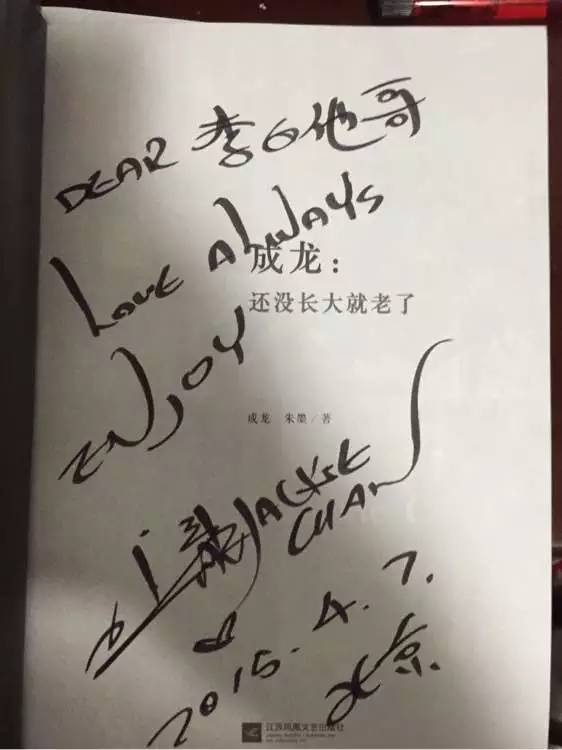 DEAR 李白他哥
LOVE ALWAYS
成龙：
还没长大就老了
ENJOY
成龙 朱墨/著
JACKIE
CHAN
2015.4.7.
北京.
江苏凤凰文艺出版社